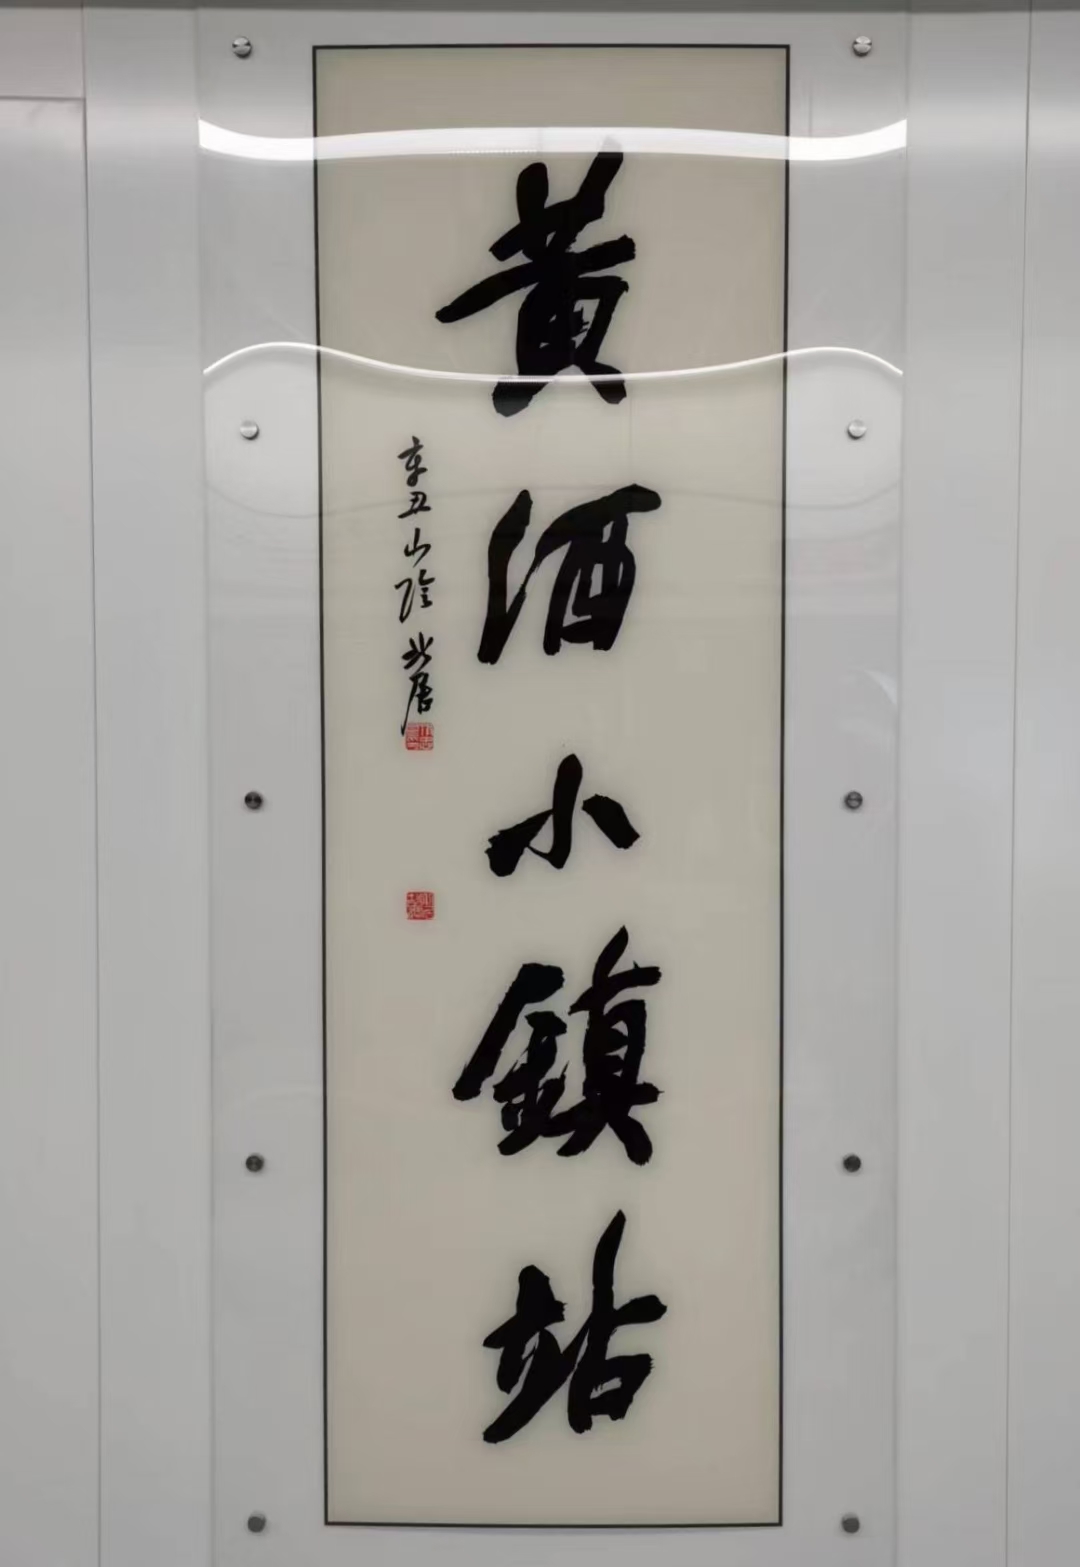 黄酒小鎮站
辛丑山陰北居